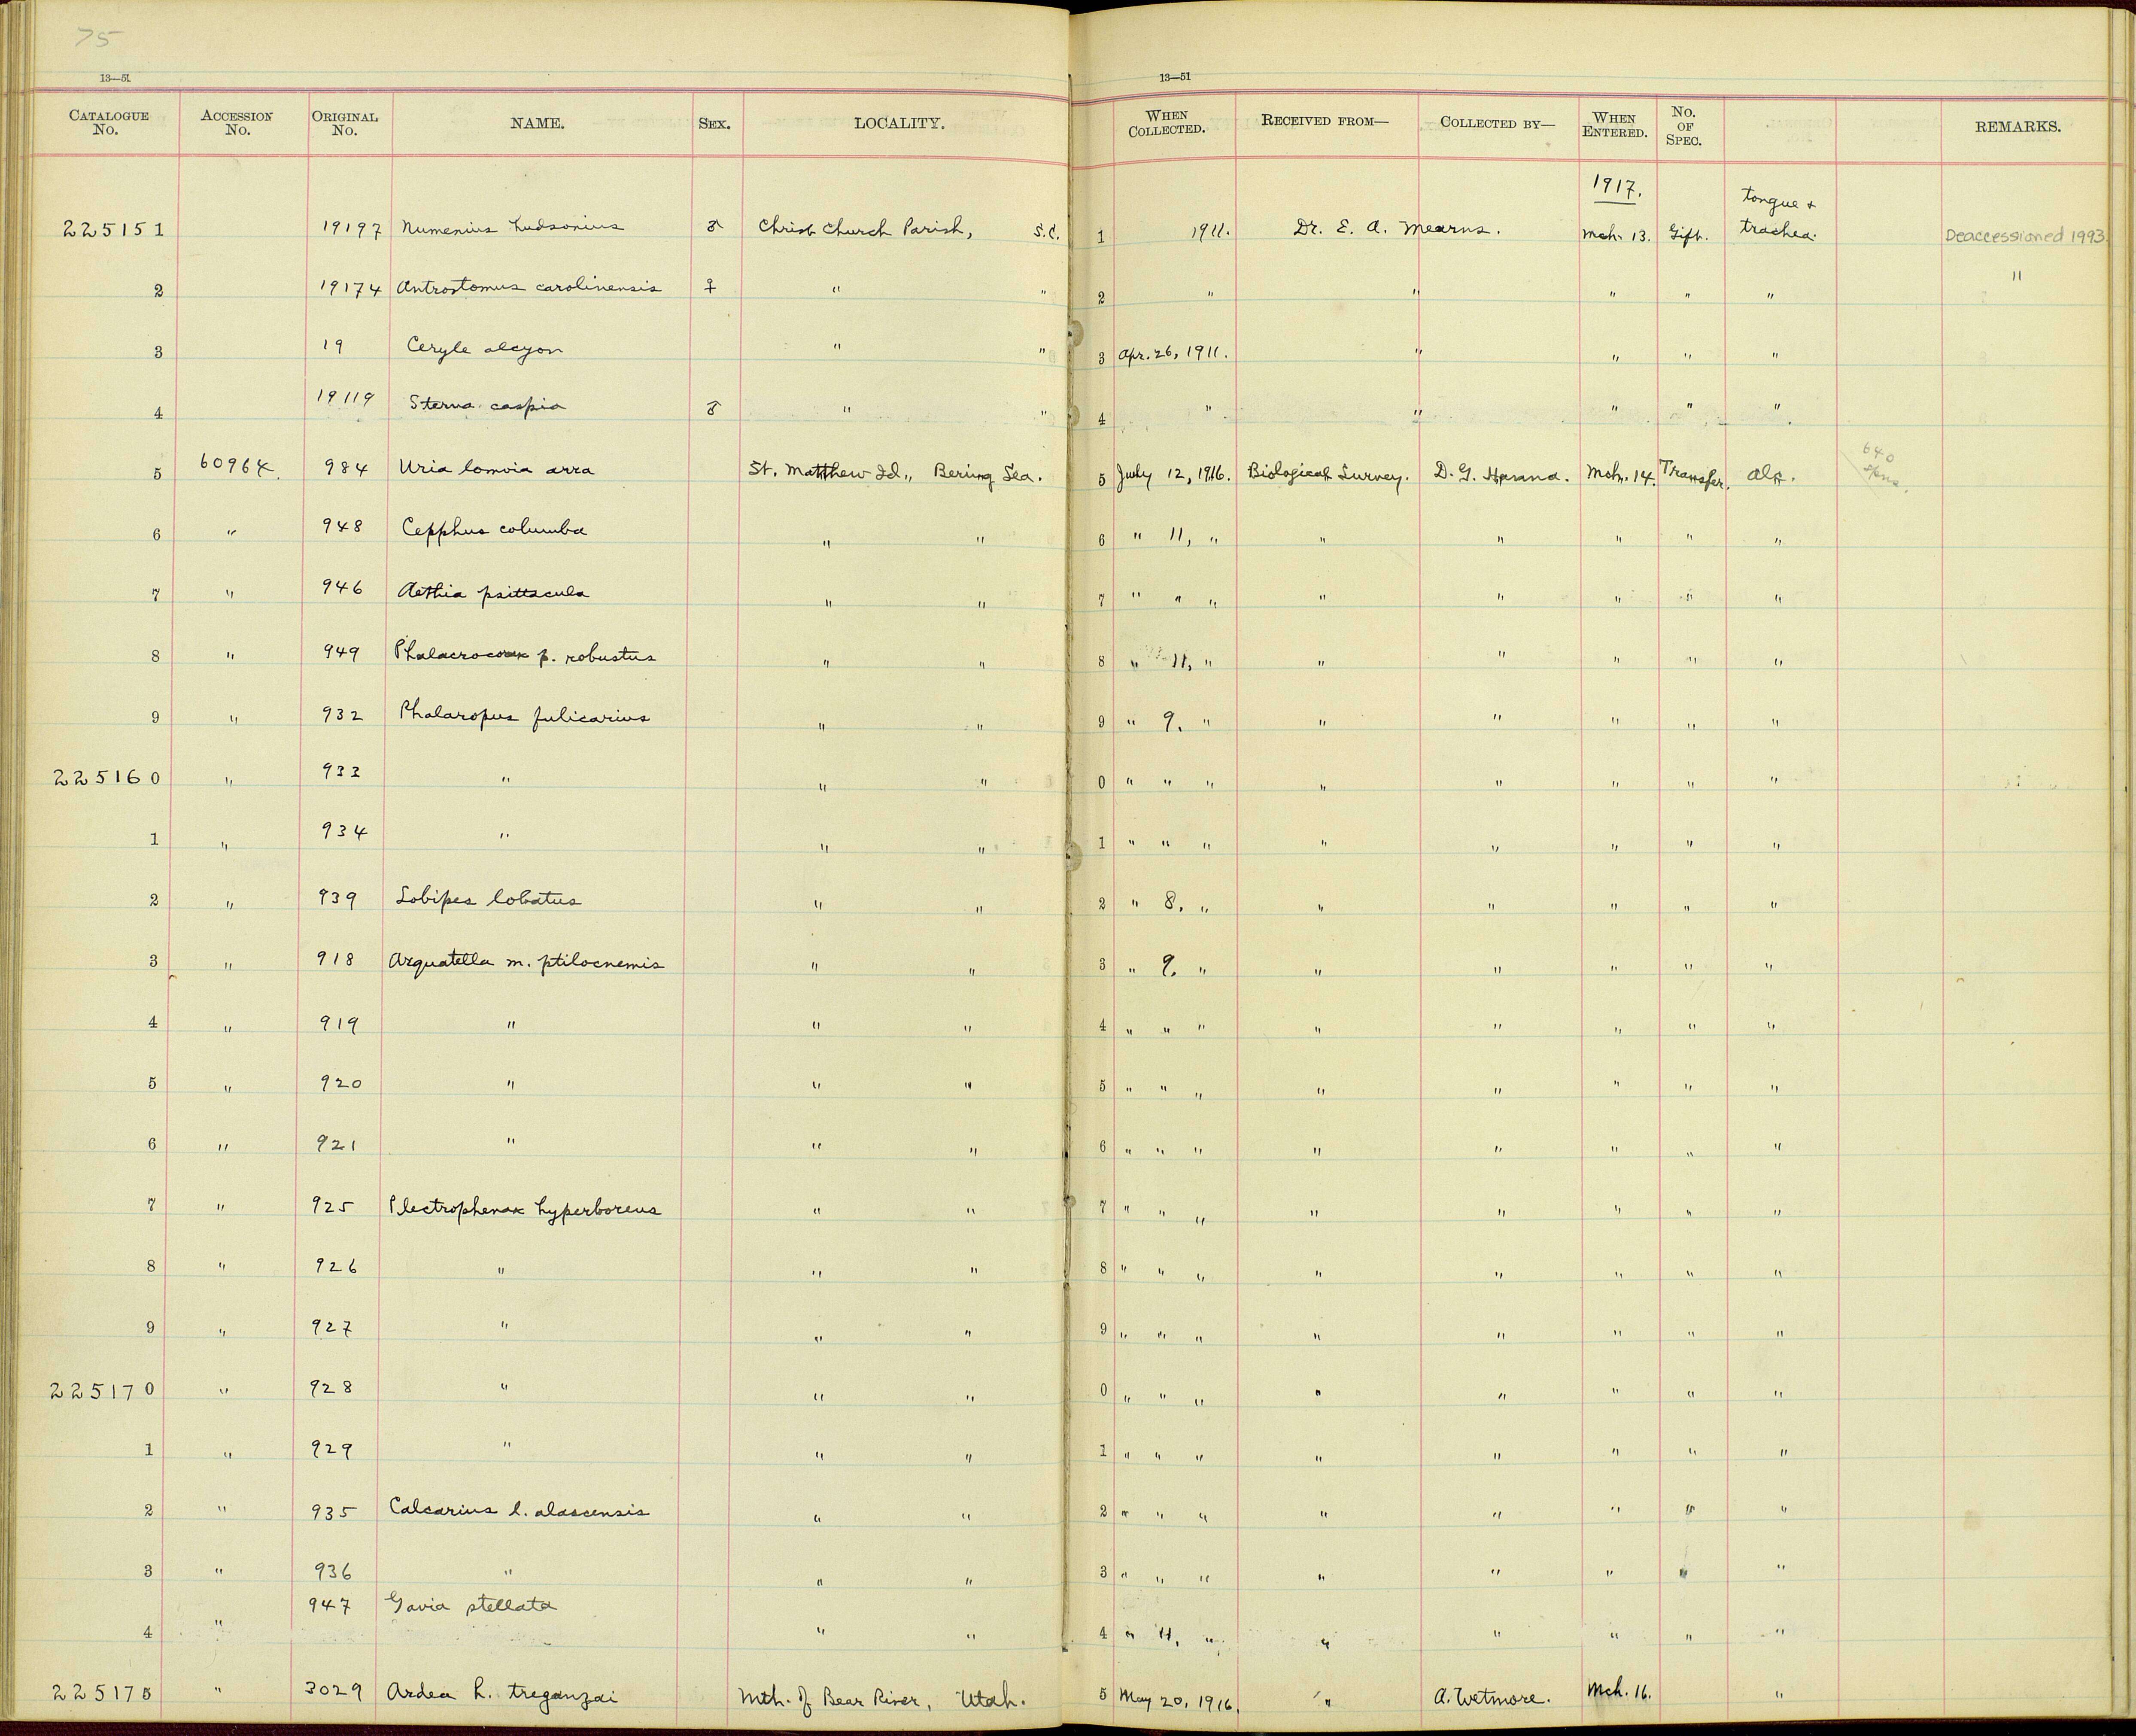 75
13—51
13—51
CATALOGUE No. ACCESSION No. ORIGINAL No. NAME. SEX. LOCALITY. WHEN COLLECTED. RECEIVED FROM— COLLECTED BY— WHEN ENTERED. No. OF SPEC. REMARKS.
1917.
225151 19197 Numenius hudsonius ♂ Christ Church Parish, S.C. 1 1911. Dr. E. A. Mearns. Mch. 13. Gift. tongue + trachea. Deaccessioned 1993.
2 19174 Antrostomus carolinensis ♀ " " 2 " " " " " "
3 19 Ceryle alcyon " " 3 Apr. 26, 1911. " " " "
4 19119 Sterna caspia ♂ " " 4 " " " " "
5 60964. 984 Uria lomvia arra St. Matthew Id., Bering Sea. 5 July 12, 1916. Biological Survey. D. G. Hanna. Mch. 14. Transfer. Alc. 640
6 " 948 Cepphus columba " " 6 " 11, " " " " " "
7 " 946 Aethia psittacula " " 7 " " " " " " " "
8 " 949 Phalacrocorax p. robustus " " 8 " 11, " " " " " "
9 " 932 Phalaropus fulicarius " " 9 " 9. " " " " " "
225160 " 933 " " " 0 " " " " " " " "
1 " 934 " " " 1 " " " " " " " "
2 " 939 Lobipes lobatus " " 2 " 8. " " " " " "
3 " 918 Arquatella m. ptilocnemis " " 3 " 9. " " " " " "
4 " 919 " " " 4 " " " " " " " "
5 " 920 " " " 5 " " " " " " " "
6 " 921 " " " 6 " " " " " " " "
7 " 925 Plectrophenax hyperboreus " " 7 " " " " " " " "
8 " 926 " " " 8 " " " " " " " "
9 " 927 " " " 9 " " " " " " " "
225170 " 928 " " " 0 " " " " " " " "
1 " 929 " " " 1 " " " " " " " "
2 " 935 Calcarius l. alascensis " " 2 " " " " " " " "
3 " 936 " " " 3 " " " " " " " "
4 " 947 Gavia stellata " " 4 " 11, " " " " " "
225175 " 3029 Ardea h. treganzai Mth. of Bear River, Utah. 5 May 20, 1916. " A. Wetmore. Mch. 16. "